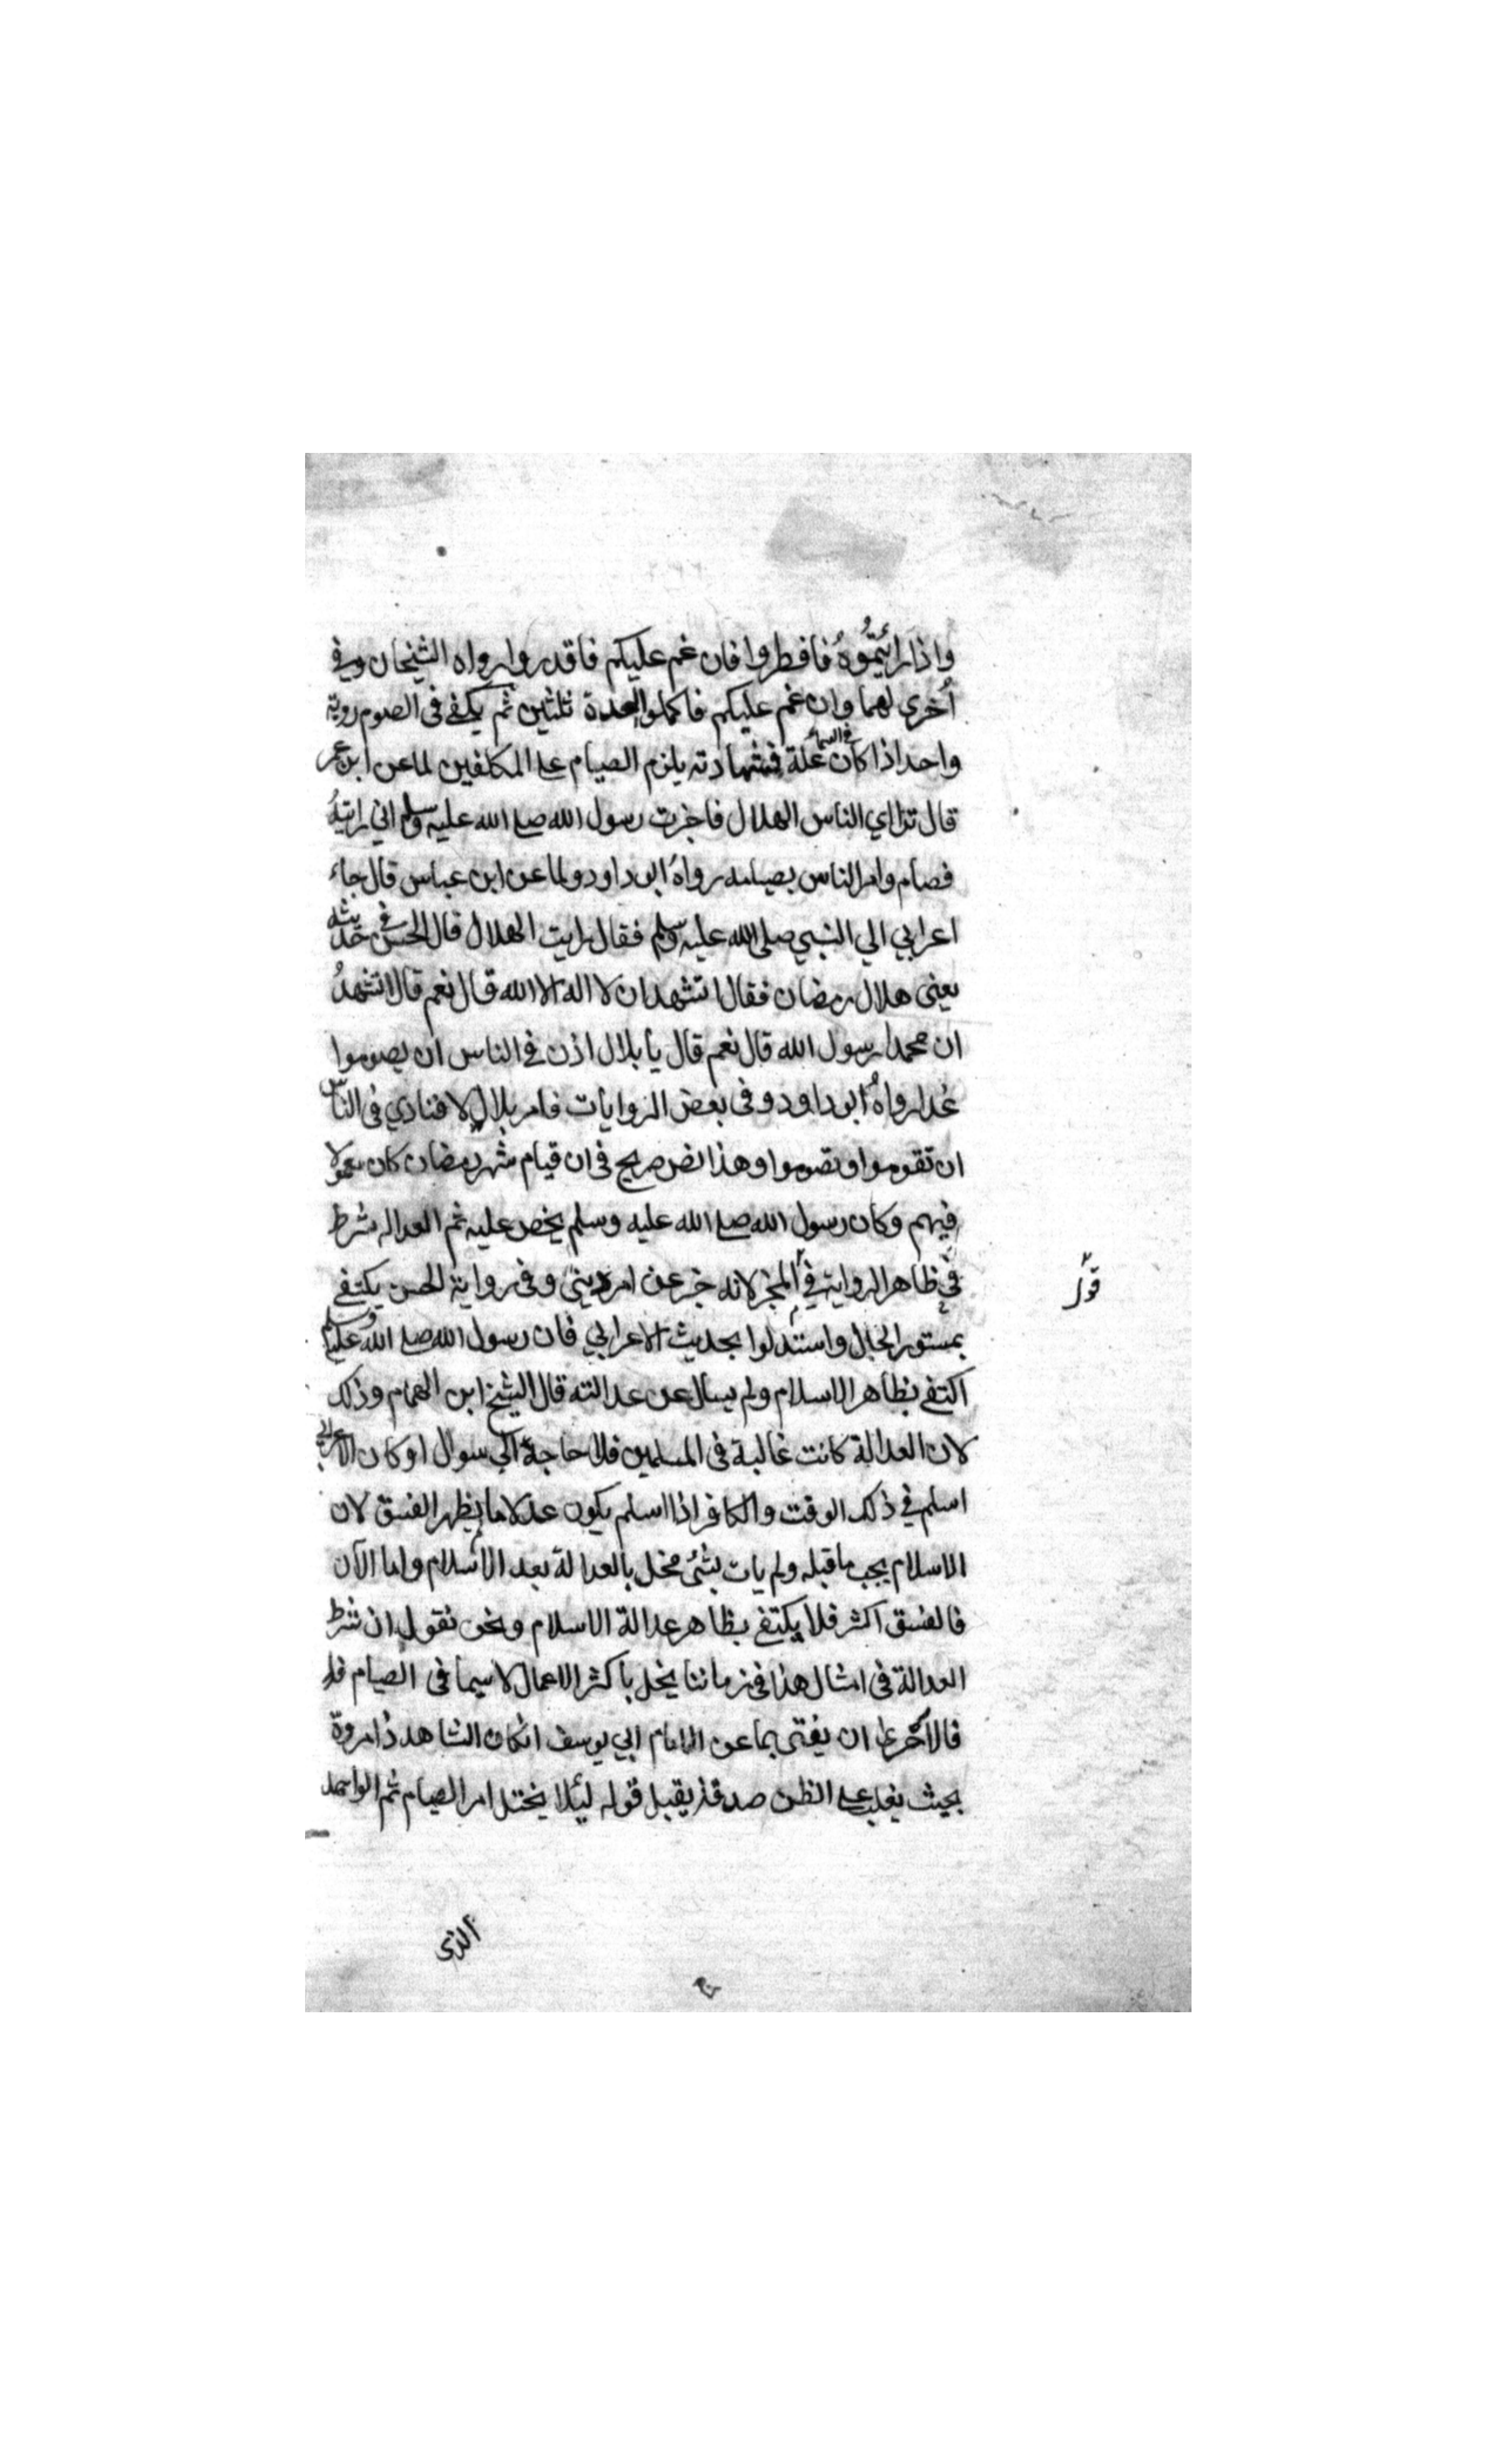 واذا رايتموه فافطروا فان غم عليكم فاقدروا رواه الشيخان وفي
اخرى لهما وان غم عليكم فاكملوا العدة ثلثين ثم يكفي في الصوم روية
واحد اذا كان في السماء علة فشهادته يلزم الصيام على المكلفين لما عن ابن عمر
قال تراءي الناس الهلال فاخبرت رسول الله صلى الله عليه وسلم اني رايته
فصام وامر الناس بصيامه رواه ابو داود ولما عن ابن عباس قال جاء
اعرابي الي النبي صلى الله عليه وسلم فقال رايت الهلال قال الحسن في حديثه
يعني هلال رمضان فقال اتشهد ان لا اله الا الله قال نعم قال اتشهد
ان محمدا رسول الله قال نعم قال يا بلال اذن في الناس ان يصوموا
غدا رواه ابو داود وفي بعض الروايات فامر بلالا فنادي في الناس
ان تقوموا وتصوموا وهذا نص صريح في ان قيام شهر رمضان كان معمولا
فيهم وكان رسول الله صلى الله عليه وسلم يخص عليه ثم العدالة شرط
في ظاهر الرواية في المخبر لانه خبر عن امر ديني وفي رواية الحسن يكتفي
قول
بمستور الحال واستدلوا بحديث الاعرابي فان رسول الله صلى الله عليه وسلم
اكتفي بظاهر الاسلام ولم يسال عن عدالته قال الشيخ ابن الهمام وذلك
لان العدالة كانت غالبة في المسلمين فلا حاجة الي سوال او كان الاعرابي
اسلم في ذلك الوقت والكافر اذا اسلم يكون عدلا ما يظهر الفسق لان
الاسلام يجب ما قبله ولم يات بشئ مخل بالعدالة بعد الاسلام واما الآن
فالفسق اكثر فلا يكتفي بظاهر عدالة الاسلام ونحن نقول ان شرط
العدالة في امثال هذا في زماننا يخل باكثر الاعمال لاسيما في الصيام
فالاحرى ان يفتى بما عن الامام ابي يوسف انكان الشاهد ذا مروة
بحيث يغلب على الظن صدقه يقبل قوله ليلا يختل امر الصيام ثم الواحد
الذي